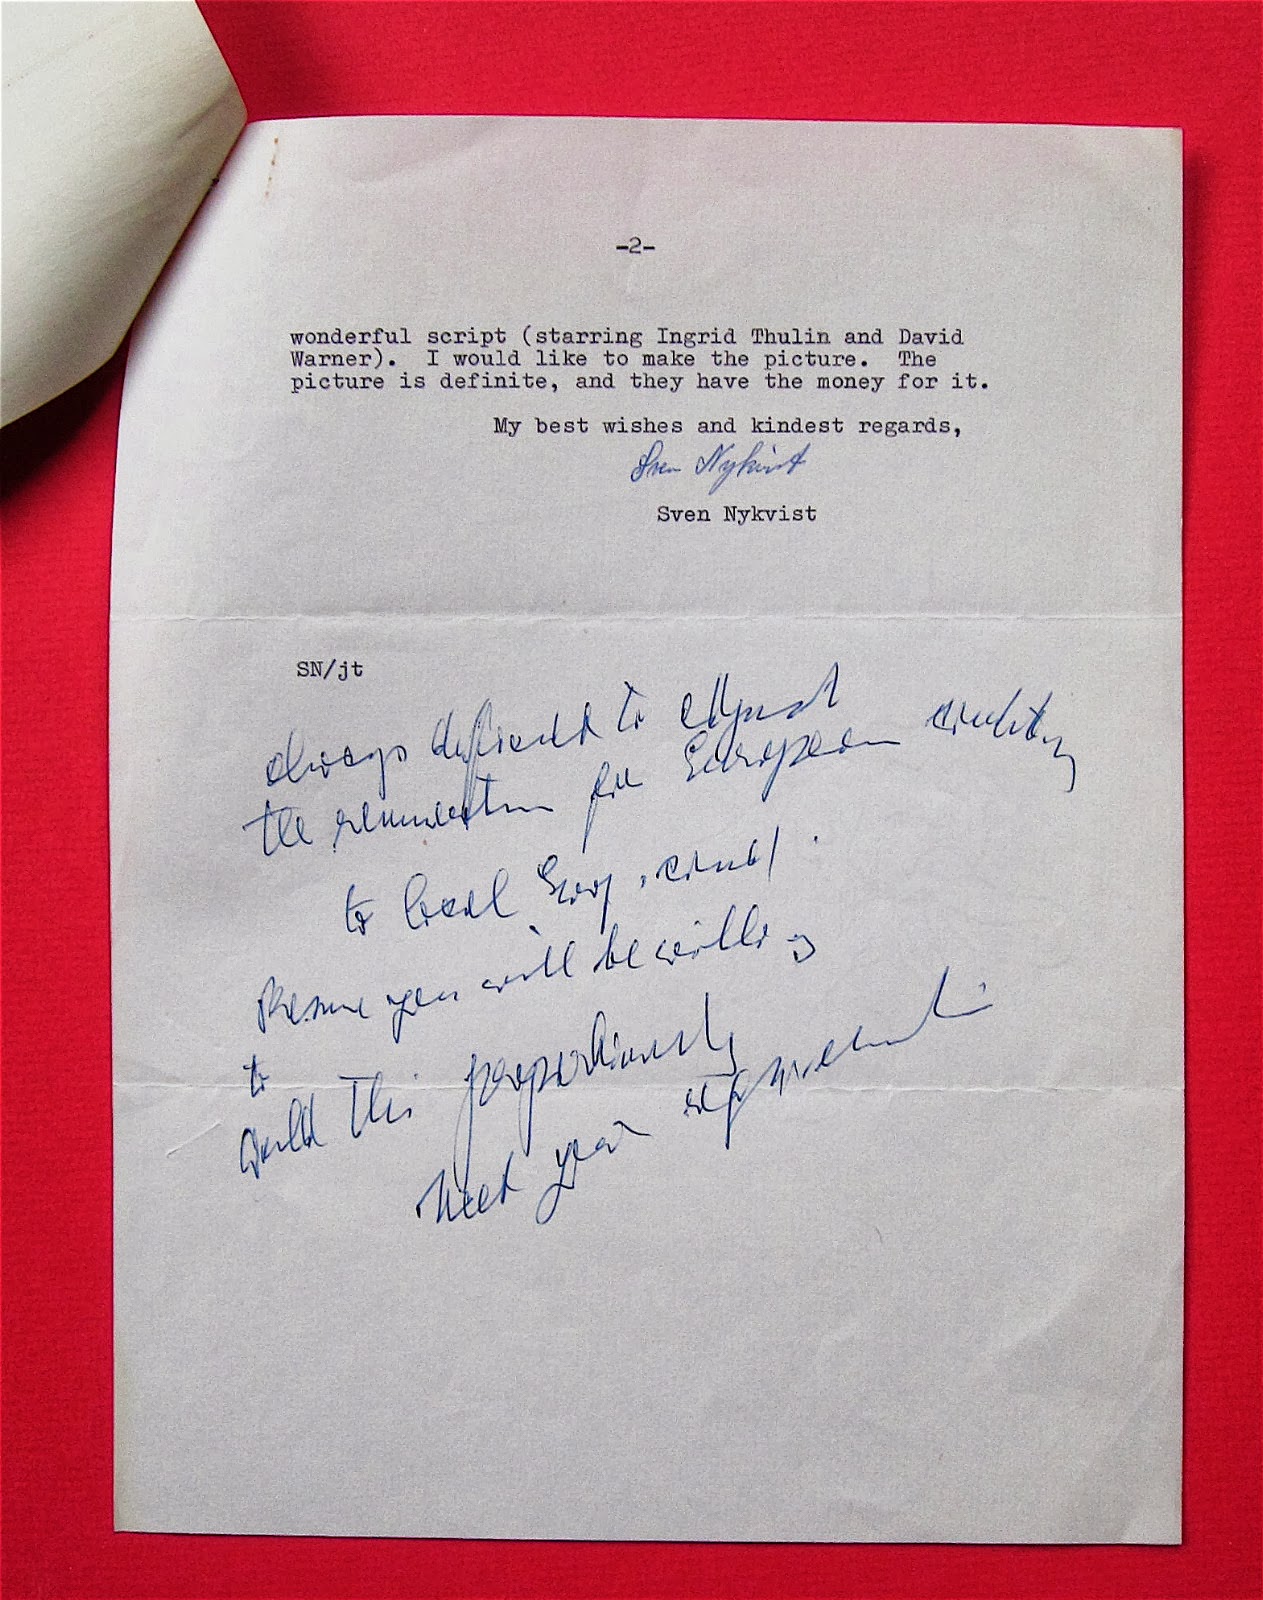 -2-
wonderful script (starring Ingrid Thulin and David
Warner). I would like to make the picture. The
picture is definite, and they have the money for it.
My best wishes and kindest regards,
Sven Nykvist
Sven Nykvist
SN/jt
always difficult to adjust
the for European
to local
you will be willing
to
this proportionately
meet your